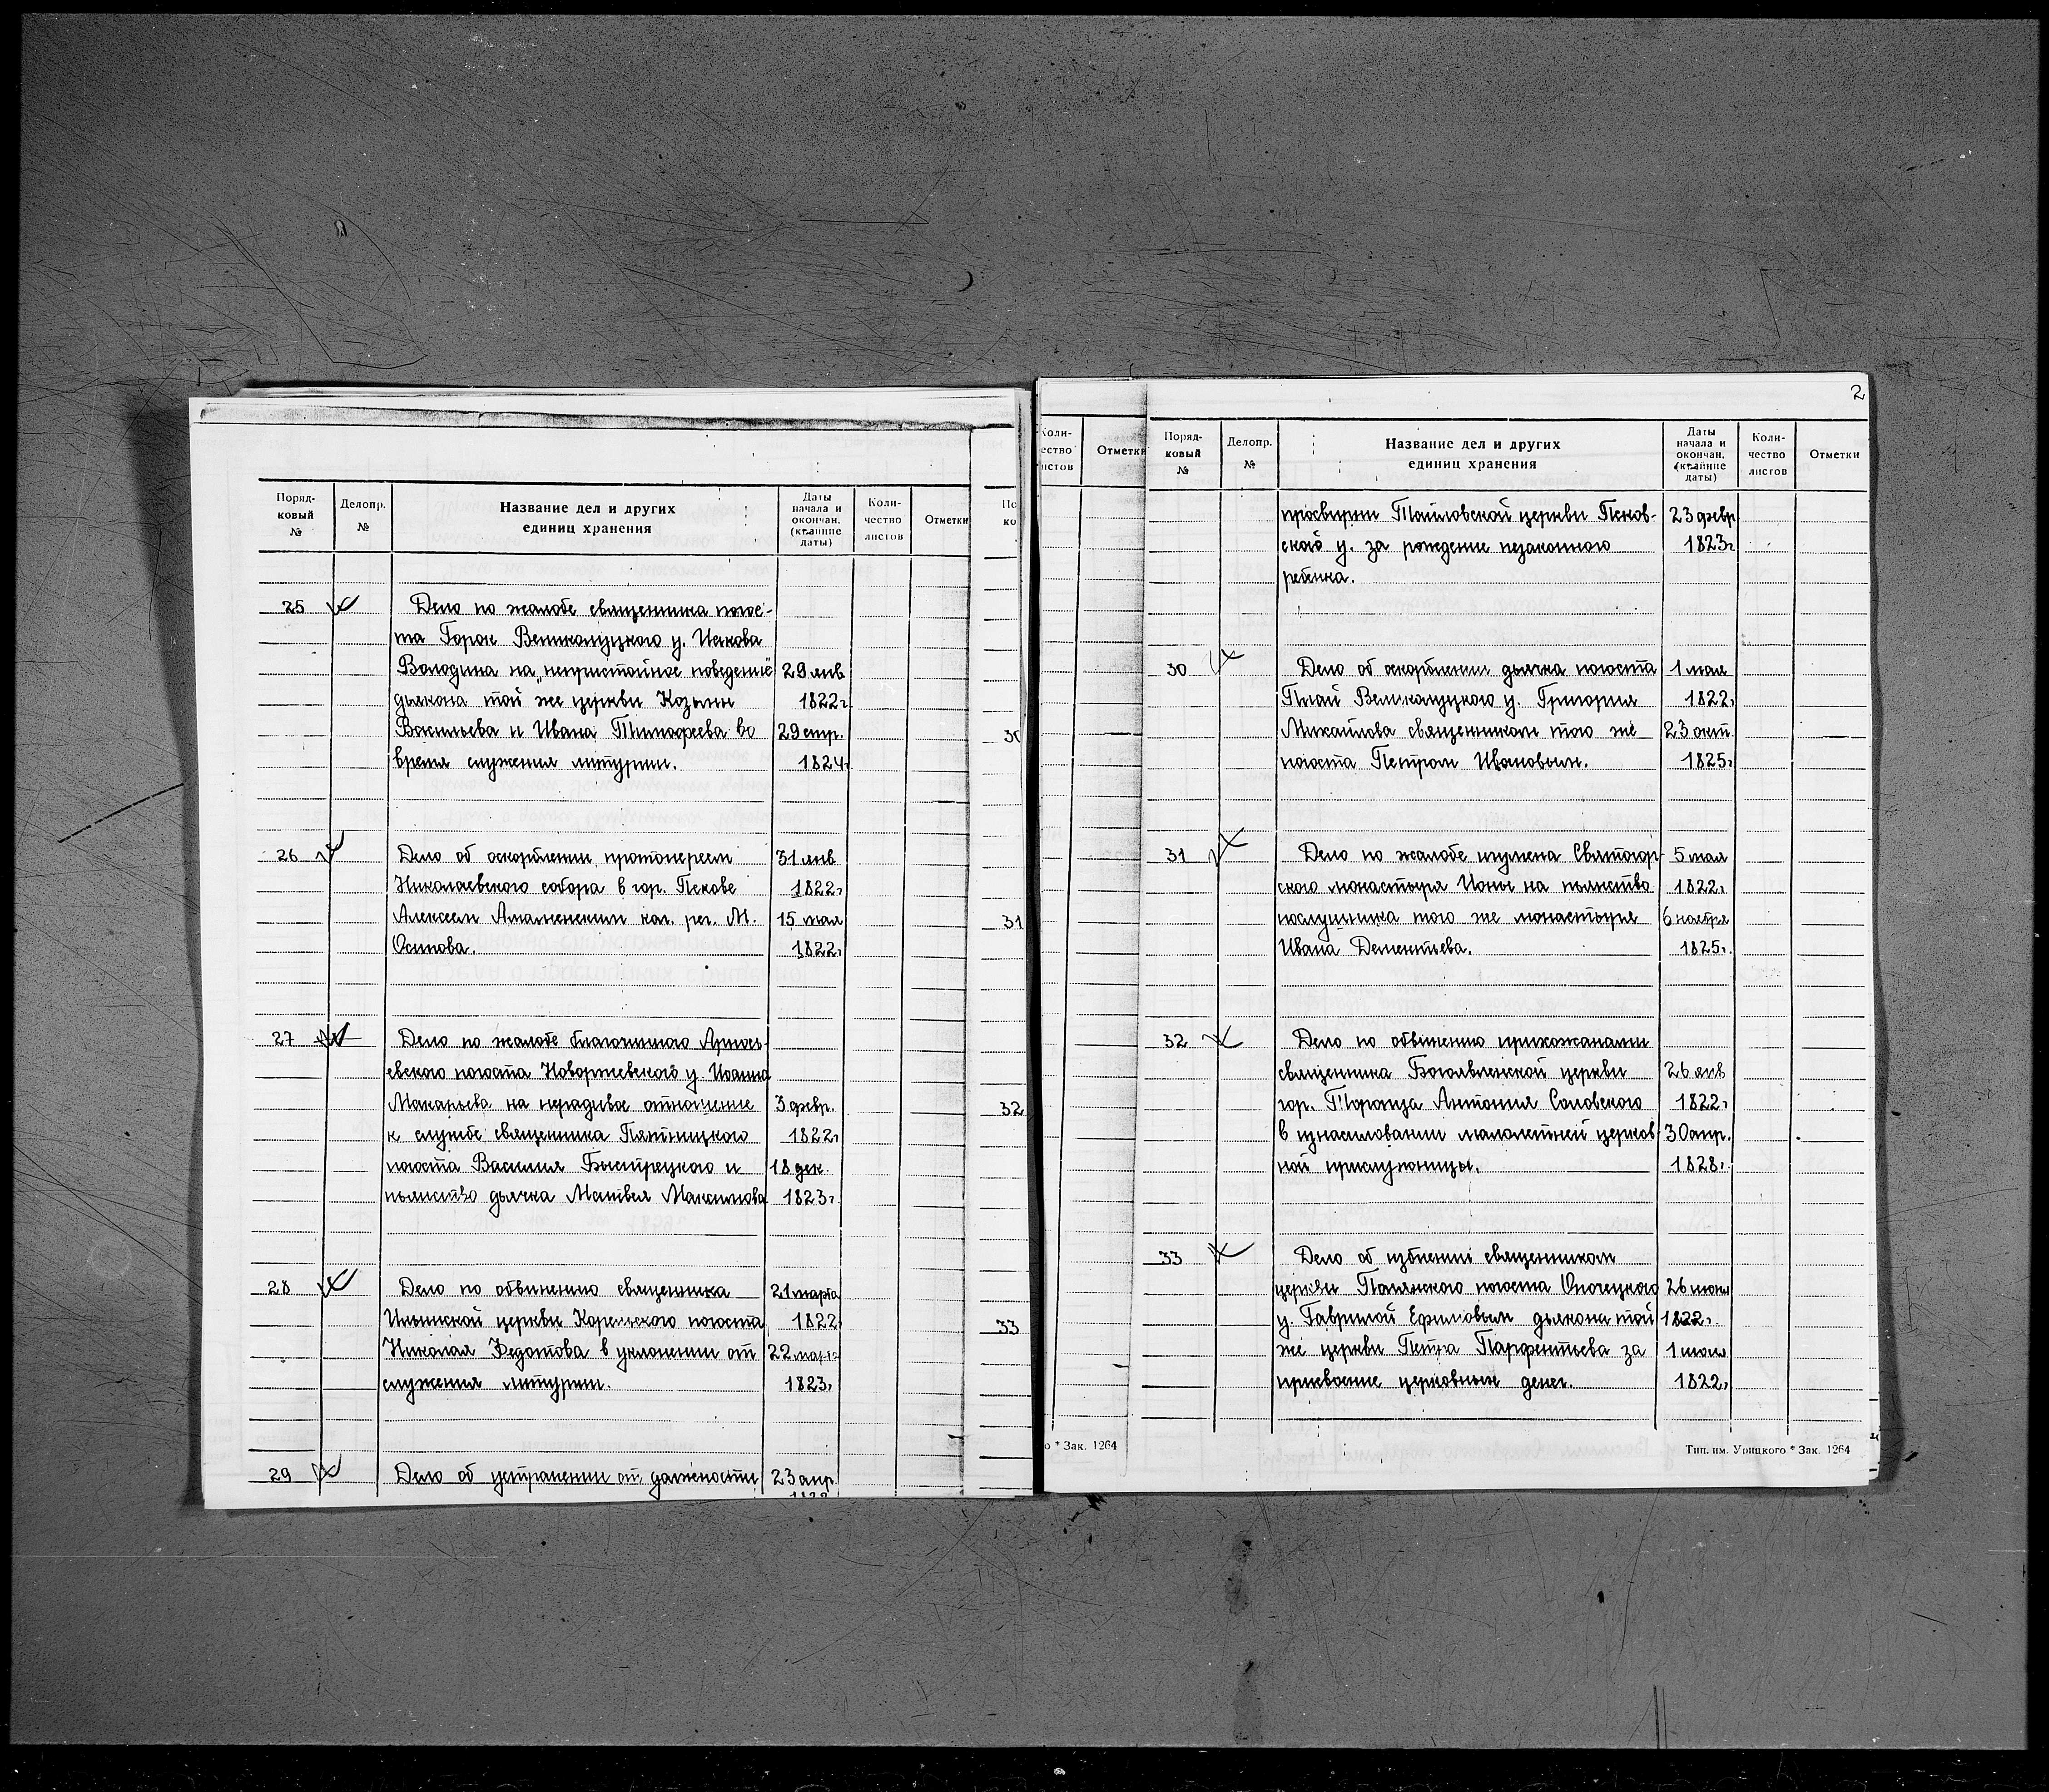 Поряд-
ковый
№
Делопр.
№
Название дел и других
единиц хранения
Даты
начала и
окончан.
(крайние
даты)
Коли-
чество
листов
Отметки
25 Дело по жалобе священника погос-
та Горок Великолуцкого у. Иакова
Володина на „непристойное поведение" 29 янв
дьякона той же церкви Козьмы 1822г
Васильева и Ивана Тимофеева во 29 апр.
время служения литургии. 1824г
26 Дело об оскорблении протоиереем 31 янв
Николаевского собора в гор. Пскове 1822г
Алексеем кол. рег. М. 15 мая
Осипова. 1822г
27 Дело по жалобе благочинного
евского погоста Новоржевского у. Иоанна
Макарьева на нерадивое отношение 3 февр.
к службе священника Пятницкого 1822г
погоста Василия Быстрецкого и 18 дек.
пьянство дьячка Матвея Максимова 1823г
28 Дело по обвинению священника 21 марта
Ильинской церкви Корельского погоста 1822
Николая Федотова в уклонении от 22 марта
служения литургии. 1823г
29 Дело об устранении от должности 23 апр.
1822
По
ко
30
31
32
33
Коли-
чество
листов
Отметки
о * Зак. 1264
2
Поряд-
ковый
№
Делопр.
№
Название дел и других
единиц хранения
Даты
начала и
окончан.
(крайние
даты)
Коли-
чество
листов
Отметки
просвирни Таиловской церкви Псков- 23 февр
ского у. за рождение незаконного 1823г
ребенка.
30 Дело об оскорблении дьячка погоста 1 мая
Плай Великолуцкого у. Григория 1822г
Михайлова священником того же 23 окт.
погоста Петром Ивановым. 1825г
31 Дело по жалобе игумена Святогор- 5 мая
ского монастыря Ионы на пьянство 1822г
послушника того же монастыря 6 ноября
Ивана Дементьева. 1825г.
32 Дело по обвинению прихожанами
священника Богоявленской церкви 26 янв
гор. Торопца Антония Соловского 1822г
в изнасиловании малолетней церков 30 апр.
ной прислужницы. 1828г.
33 Дело об избиении священником
церкви Полянского погоста Опочецкого 26 июня
у. Гаврилой Ефимовым дьякона той 1822г.
же церкви Петра Парфентьева за 1 июля
присвоение церковных денег. 1822г
Тип. им. Урицкого * Зак. 1264